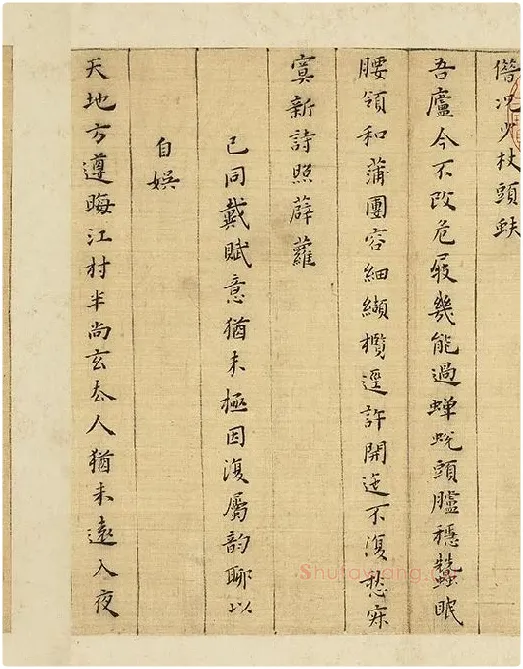 况少杖頭蚨
吾廬今不改危屐幾能過蟬蛻頭臚穩蠶眠
腰領和蒲團容細纈欖逕許開迤不復愁寐
寞新詩照薜蘿
已同戴賦意猶未極因復屬韵聊以
自娱
天地方遵晦江村半尚玄人猶未遠入夜